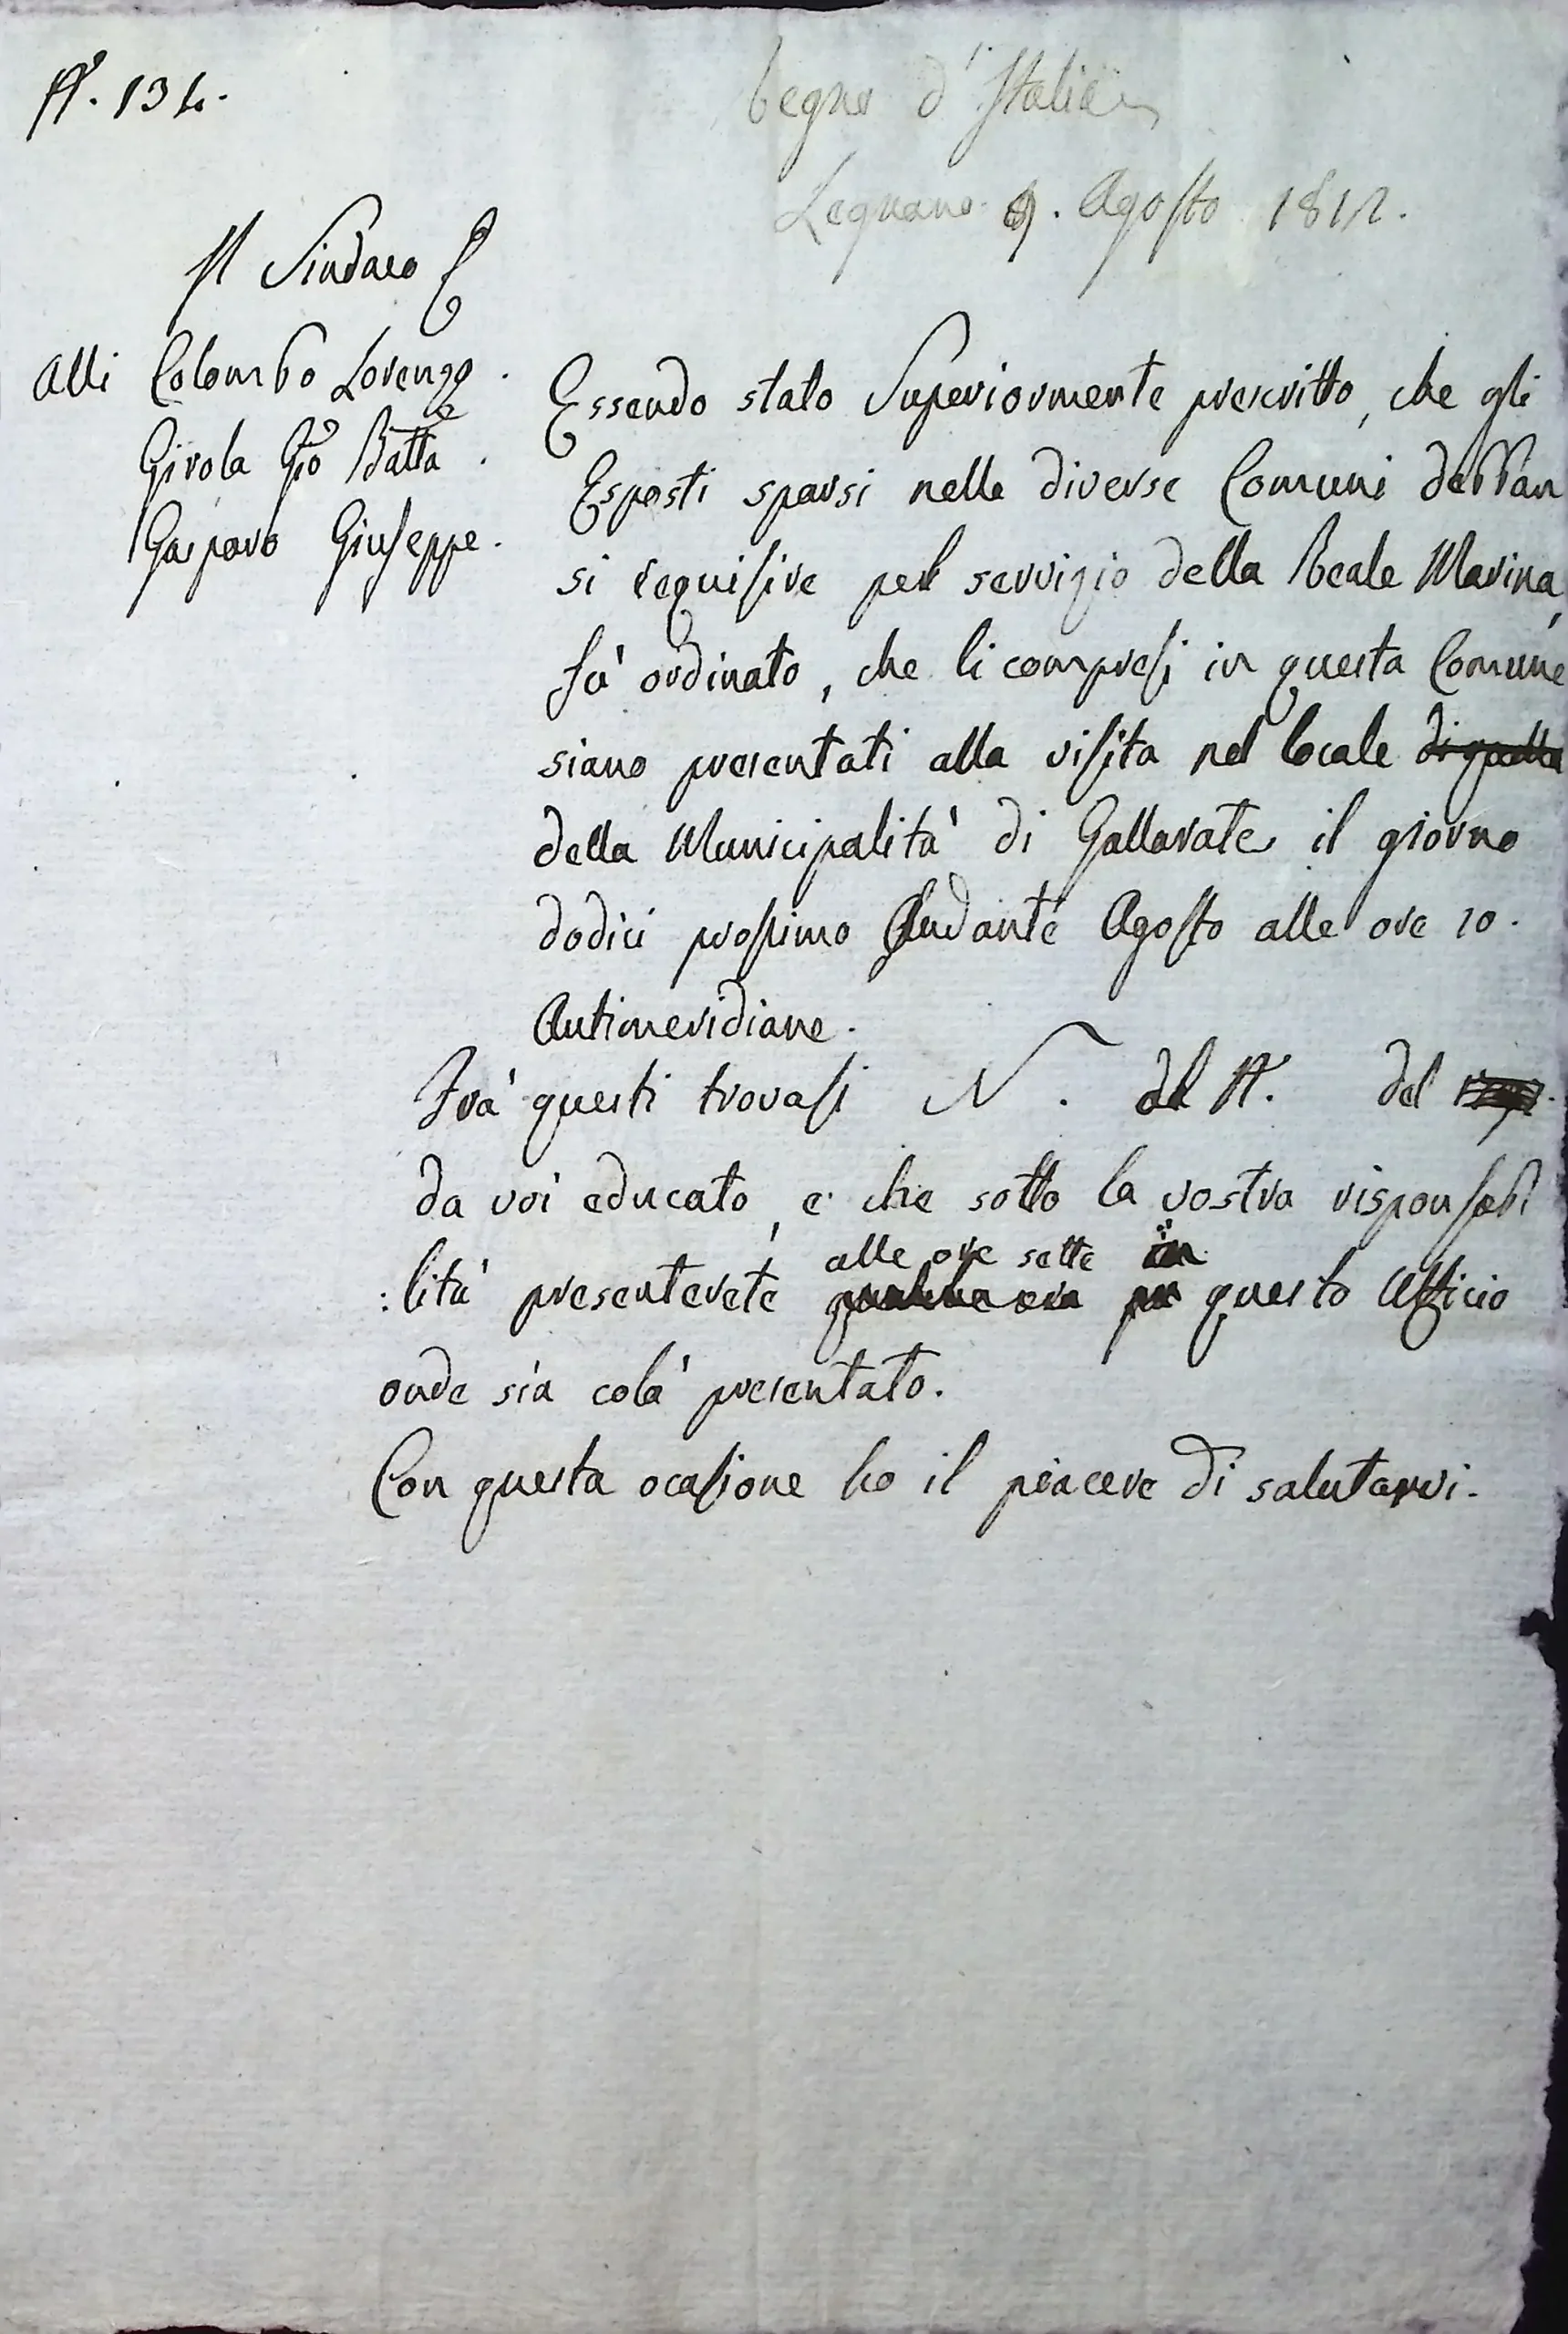 N. 134.
Regno d'Italia
Legnano 9. Agosto 1812.
Il Sindaco
Alli Colombo Lorenzo.
Girola Gio Batta.
Gasparo Giuseppe.
Essendo stato Superiormente prescritto, che gli
Esposti sparsi nelle diverse Comuni debban
si requisire pel servizio della Reale Marina,
fù ordinato, che li compresi in questa Comune
siano presentati alla visita nel locale di quella
della Municipalità di Gallarate il giorno
dodici prossimo Andante Agosto alle ore 10.
Antimeridiane.
Frà questi trovasi N. del N. del
da voi educato, e che sotto la vostra risponsabi
alle ore sette in
:lità presenterete questo Ufficio
onde sia colà presentato.
Con questa ocasione ho il piacere di salutarvi.